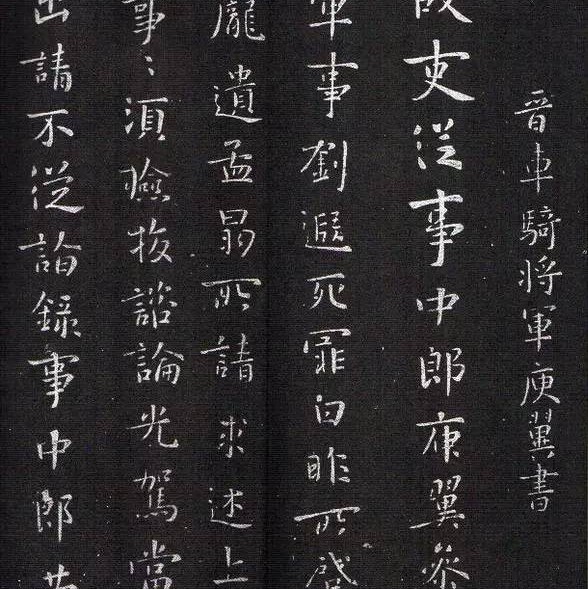 晉車騎將軍庾翼書
故吏從事中郎庾翼參
軍事劉遐死罪白昨所啓
龐遺孟昻所請求述上
事〻須檢校諮論光駕當
出請不從諮錄事中郎共